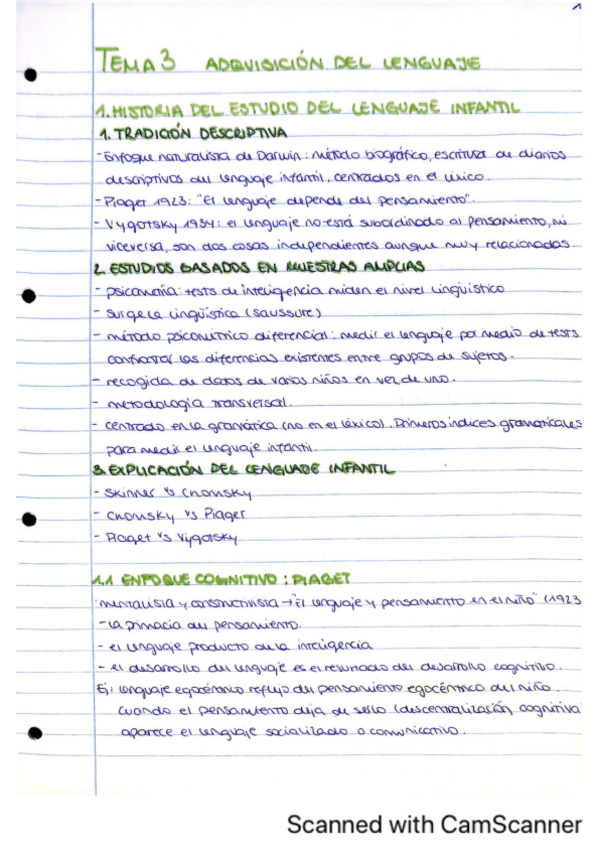 1
TEMA 3 ADQUISICIÓN DEL LENGUAJE
1. HISTORIA DEL ESTUDIO DEL LENGUAJE INFANTIL
1. TRADICIÓN DESCRIPTIVA
- Enfoque naturalista de Darwin: método biográfico, escritura de diarios
descriptivos del lenguaje infantil, centrados en el léxico.
- Piaget 1923: "El lenguaje depende del pensamiento".
- Vygotsky 1934: el lenguaje no está subordinado al pensamiento, ni
viceversa, son dos cosas independientes aunque muy relacionadas.
2. ESTUDIOS BASADOS EN MUESTRAS AMPLIAS
- psicometría: tests de inteligencia miden el nivel lingüístico
- Surge la lingüística (Saussure)
- método psicométrico diferencial: medir el lenguaje por medio de tests
contrastar las diferencias existentes entre grupos de sujetos.
- recogida de datos de varios niños en vez de uno.
- metodología transversal.
- centrado en la gramática (no en el léxico). Primeros índices gramaticales
para medir el lenguaje infantil.
3. EXPLICACIÓN DEL LENGUAJE INFANTIL
- Skinner vs Chomsky
- Chomsky vs Piaget
- Piaget vs Vygotsky
1.1 ENFOQUE COGNITIVO: PIAGET
mentalista y constructivista → "El lenguaje y pensamiento en el niño" (1923
- la primacía del pensamiento.
- el lenguaje producto de la inteligencia
- el desarrollo del lenguaje es el resultado del desarrollo cognitivo.
Ej: lenguaje egocéntrico reflejo del pensamiento egocéntrico del niño.
Cuando el pensamiento deja de serlo (descentralización cognitiva
aparece el lenguaje socializado o comunicativo.
Scanned with CamScanner